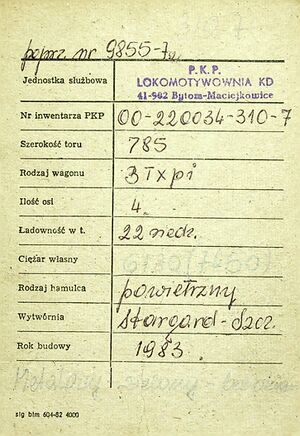 poprz. nr 9855-7
Jednostka służbowa
P.K.P.
LOKOMOTYWOWNIA KD
41-902 Bytom-Maciejkowice
Nr inwentarza PKP 00-220034-310-7
Szerokość toru 785
Rodzaj wagonu BTxpi
Ilość osi 4
Ładowność w t. 22 niedz.
Ciężar własny 6170 (7450)
Rodzaj hamulca powietrzny
Wytwórnia Stargard-Szcz.
Rok budowy 1983
Metalowy zielony
stg btm 604-82 4000